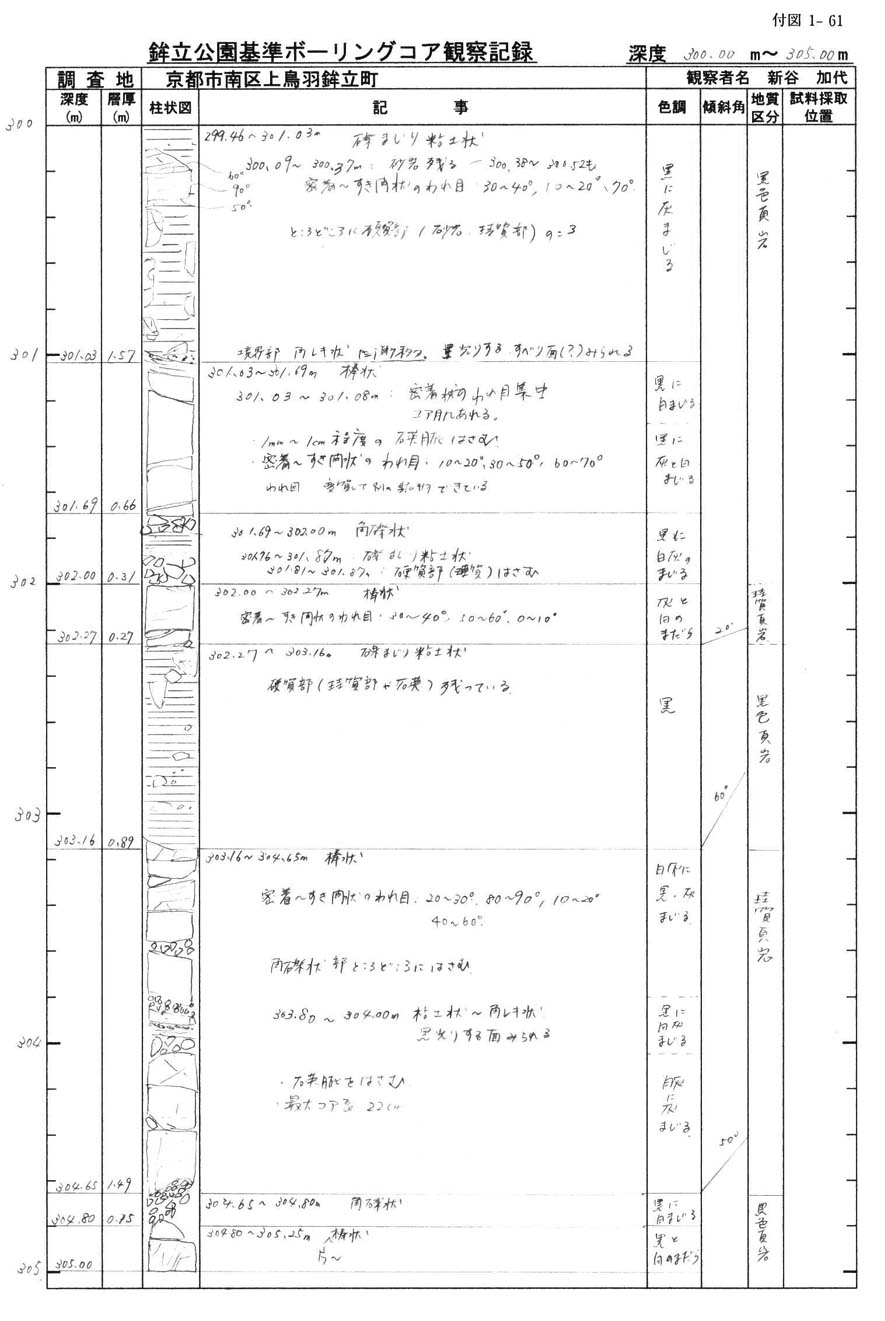 付図 1- 61
鉾立公園基準ボーリングコア観察記録 深度 300.00 m〜 305.00 m
調査地 京都市南区上鳥羽鉾立町 観察者名 新谷 加代
深度(m) 層厚(m) 柱状図 記事 色調 傾斜角 地質区分 試料採取位置
300
299.46〜301.03m 礫まじり粘土状
300.09〜300.37m: 砂岩残る 300.38〜300.52も
60°
90°
50°
密着〜すき間状のわれ目 30〜40°, 10〜20°、70°
ところどころに硬質部(砂岩、珪質部)のこる
黒に灰まじる
黒色頁岩
301
301.03 1.57
境界部 角レキ状 黒光りする すべり面(?)みられる
301.03〜301.69m 棒状
301.03〜301.08m: 密着状のわれ目集中
コアあれる。
・1mm〜1cm程度の石英脈はさむ
・密着〜すき間状のわれ目・10〜20°, 30〜50°, 60〜70°
われ目 変質して できている
黒に白まじる
黒に灰と白まじる
301.69 0.66
301.69〜302.00m 角礫状
301.76〜301.87m: 礫まじり粘土状
301.81〜301.87m: 硬質部(珪質)はさむ
黒に白灰のまじる
302
302.00 0.31
302.00〜302.27m 棒状
密着〜すき間状のわれ目: 30〜40°, 50〜60°, 0〜10°
灰と白のまだら
20°
珪質頁岩
302.27 0.27
302.27〜303.16m 礫まじり粘土状
硬質部(珪質部や石英)残っている
黒
黒色頁岩
60°
303
303.16 0.89
303.16〜304.65m 棒状
密着〜すき間状のわれ目. 20〜30°, 80〜90°, 10〜20°
40〜60°
白灰に黒・灰まじる
珪質頁岩
角礫状部ところどころにはさむ
303.80〜304.00m 粘土状〜角レキ状
黒光りする面みられる
黒に白灰まじる
304
・石英脈をはさむ
・最大コア長 22cm
白灰に灰まじる
50°
304.65 1.49
304.65〜304.80m 角礫状
黒に白まじる
黒色頁岩
304.80 0.15
304.80〜305.25m 棒状
片〜
黒と白のまだら
305
305.00